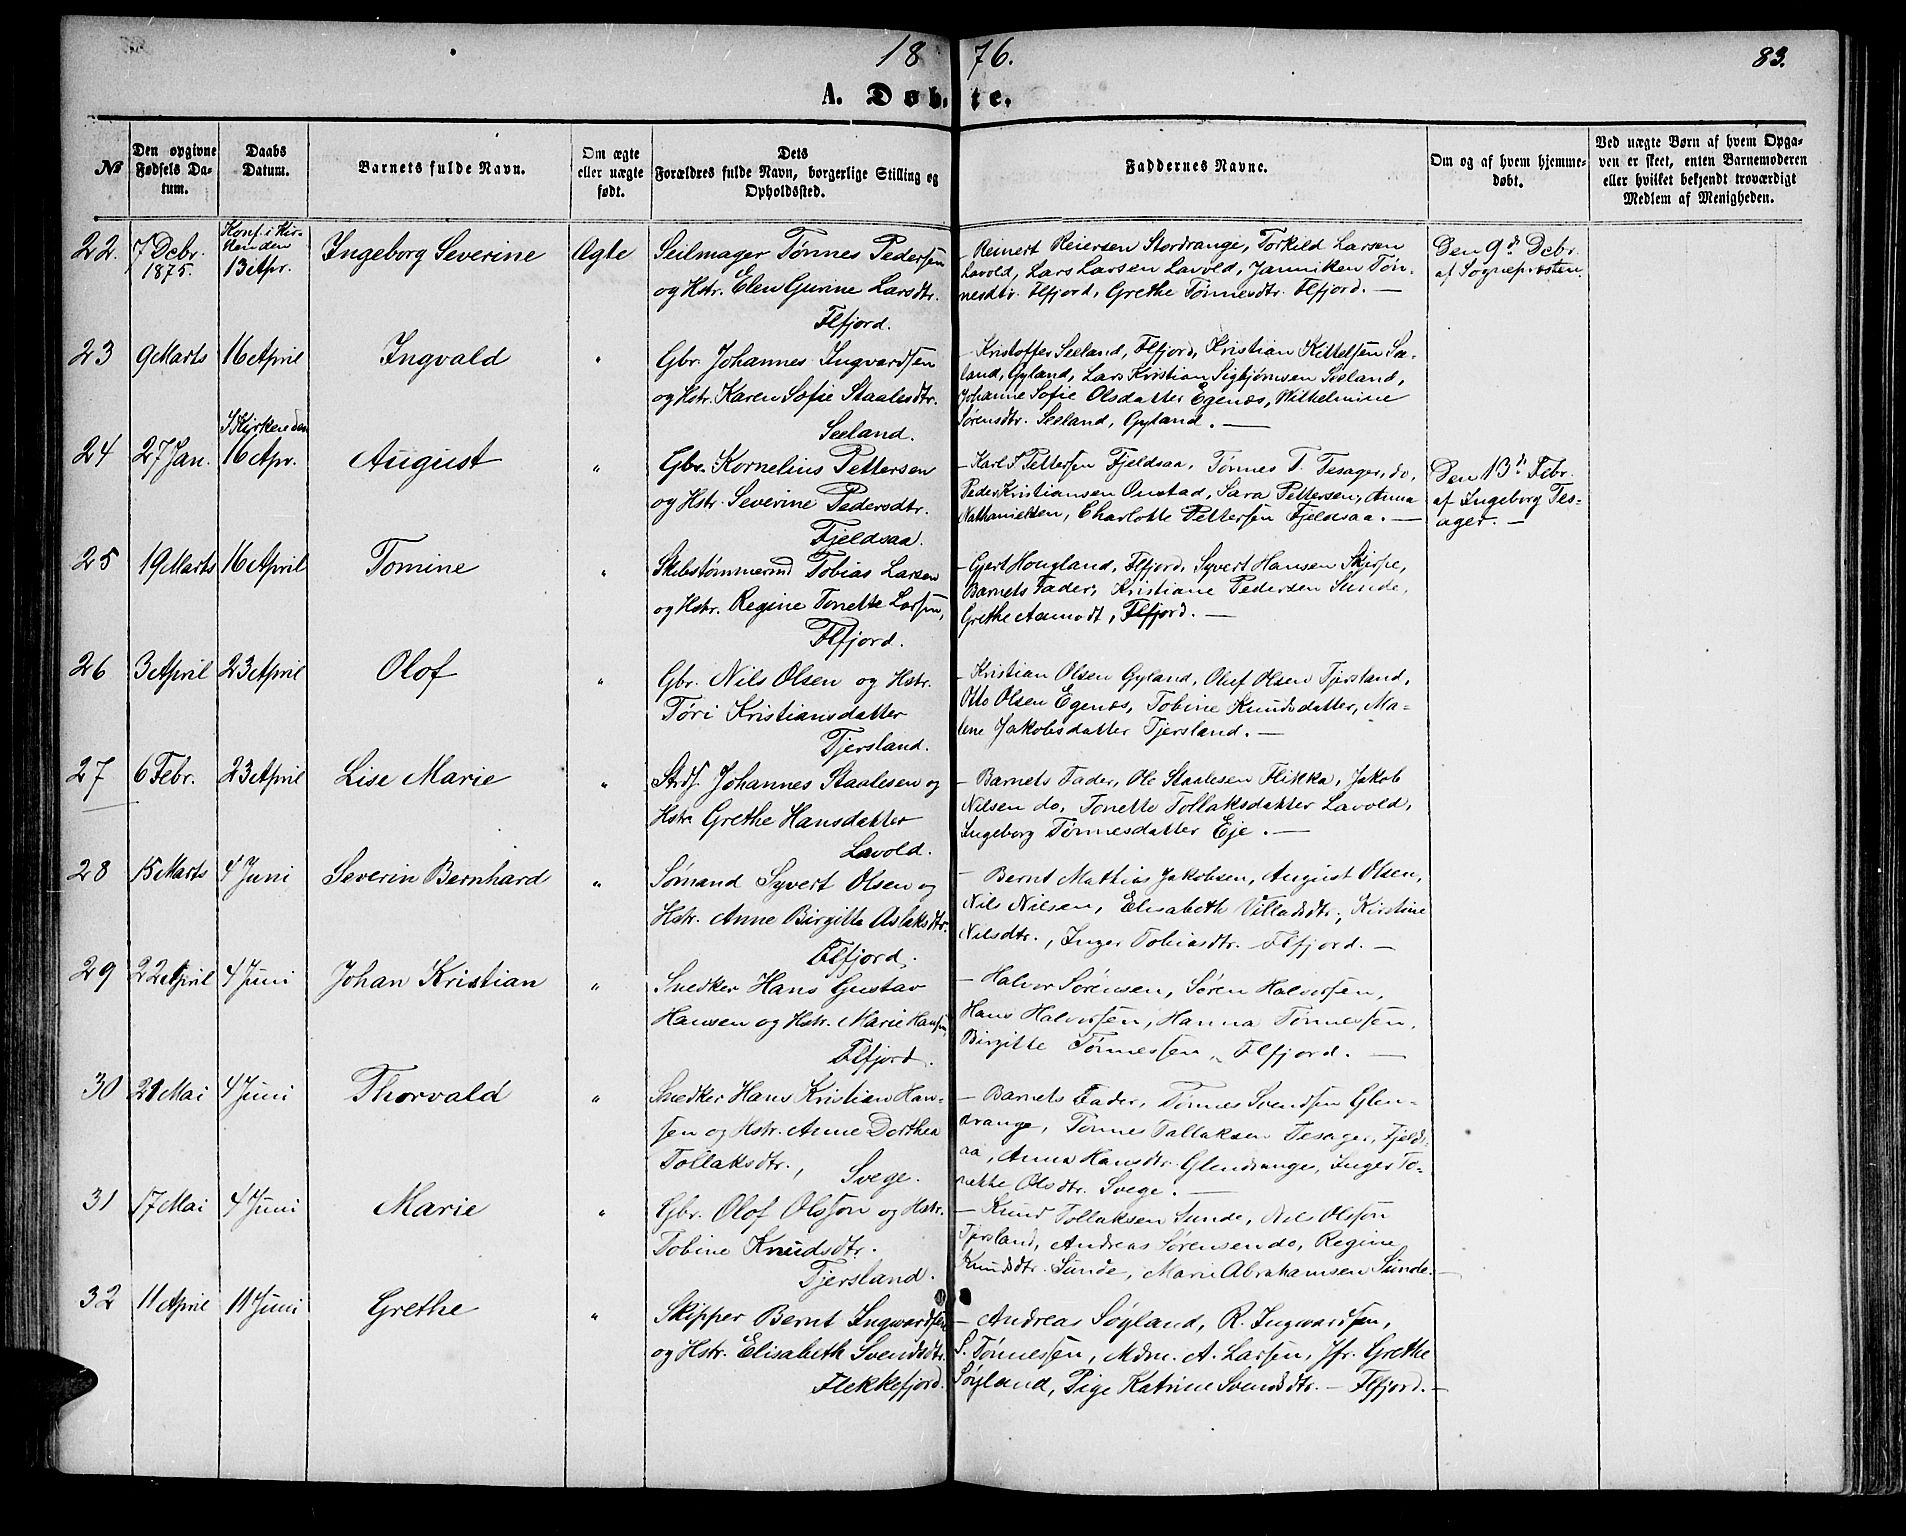 18 76.
83.
A. Døbte.
№
Den opgivne Fødsels Datum.
Daabs Datum.
Barnets fulde Navn.
Om ægte eller uægte født.
Dets Forældres fulde Navn, borgerlige Stilling og Opholdssted.
Faddernes Navne.
Om og af hvem hjemmedøbt.
Ved uægte Børn af hvem Opgaven er skeet, enten Barnemoderen eller hvilket bekjendt troværdigt Medlem af Menigheden.
22. 7 Debr. 1875. Konf. i Kirken den 13 Apr. Ingeborg Severine Ægte
Seilmager Tønnes Pedersen
og Hstr. Elen Gurine Larsdtr.
Flfjord.
- Reinert Reiersen Stordrange, Torkild Larsen
Lavold, Lars Larsen Lavold, Janniken Tøn-
nesdtr. Flfjord, Grethe Tønnesdtr. Flfjord. -
Den 9d Debr.
af Sognepresten.
23 9 Marts 16 April Ingvald "
Gbr. Johannes Ingvardsen
og Hstr. Karen Sofie Staalesdtr.
Seeland.
- Kristoffer Seeland, Flfjord, Kristian Kittelsen See-
land, Gyland, Lars Kristian Sigbjørnsen Seeland,
Johanne Sofie Olsdatter Egenæs, Wilhelmine
Sørensdtr. Seeland, Gyland. -
24 27 Jan. I Kirken den 16 Apr. August "
Gbr. Kornelius Pettersen
og Hstr. Severine Pedersdtr.
Fjeldsaa.
- Karl P Pettersen Fjeldsaa, Tønnes T. Tesager, do,
Peder Kristiansen Onstad, Sara Pettersen, Anna
Nathanielsen, Charlotte Pettersen Fjeldsaa. -
Den 13d Febr.
af Ingeborg Tes-
ager. -
25 19 Marts 16 April Tomine "
Skibstømmermd Tobias Larsen
og Hstr. Regine Tonette Larsen,
Flfjord.
- Gjert Hougland, Flfjord, Syvert Hansen Skjerpe,
Barnets Fader, Kristiane Pedersen Sunde,
Grethe Aamodt, Flfjord. -
26 3 April 23 April Olof "
Gbr. Nils Olsen og Hstr.
Tøri Kristiansdatter
Tjersland.
- Kristian Olsen Gyland, Oluf Olsen Tjersland,
Otto Olsen Egenæs, Tobine Knudsdatter, Ma-
lene Jakobsdatter Tjersland. -
27 6 Febr. 23 April Lise Marie "
Strdf. Johannes Staalesen og
Hstr Grethe Hansdatter
Lavold.
- Barnets Fader, Ole Staalesen Flikka, Jakob
Nilsen do, Tonette Tollaksdatter Lavold,
Ingeborg Tønnesdatter Eje. -
28 15 Marts 4 Juni Severin Bernhard "
Sømand Syvert Olsen og
Hstr. Anne Birgitte Aslaksdtr.
Flfjord.
- Bernt Mathias Jakobsen, August Olsen,
Nils Nilsen, Elisabeth Villadsdtr, Kirstine
Nilsdtr., Inger Tobiasdtr. Flfjord. -
29 22 April 4 Juni Johan Kristian "
Snedker Hans Gustav
Hansen og Hstr. Marie Hansen,
Flfjord.
- Halvor Sørensen, Søren Halvorsen,
Hans Halvorsen, Hanna Tønnessen,
Birgitte Tønnessen, Flfjord. -
30 21 Mai 4 Juni Thorvald "
Snedker Hans Kristian Han-
sen og Hstr. Anne Dorthea
Tollaksdtr., Svege.
- Barnets Fader, Tønnes Svendsen Glen-
drange, Tønnes Tollaksen Tesager, Fjelds-
aa, Anna Hansdtr. Glendrange, Inger To-
nette Olsdtr. Svege. -
31 17 Mai 4 Juni Marie "
Gbr. Olof Olsson og Hstr.
Tobine Knudsdtr.
Tjersland.
- Knud Tollaksen Sunde, Nils Olsson
Tjersland, Andreas Sørensen do, Regine
Knudsdtr. Sunde, Marie Abrahamsen Sunde. -
32 11 April 11 Juni Grethe "
Skipper Bernt Ingwardsen
og Hstr. Elisabeth Svendsdtr.
Flekkefjord.
- Andreas Søyland, R. Ingwardsen,
S. Tønnessen, Mdm. A. Larsen, Jfr. Grethe
Søyland, Pige Katrine Svendsdtr. - Flfjord. -